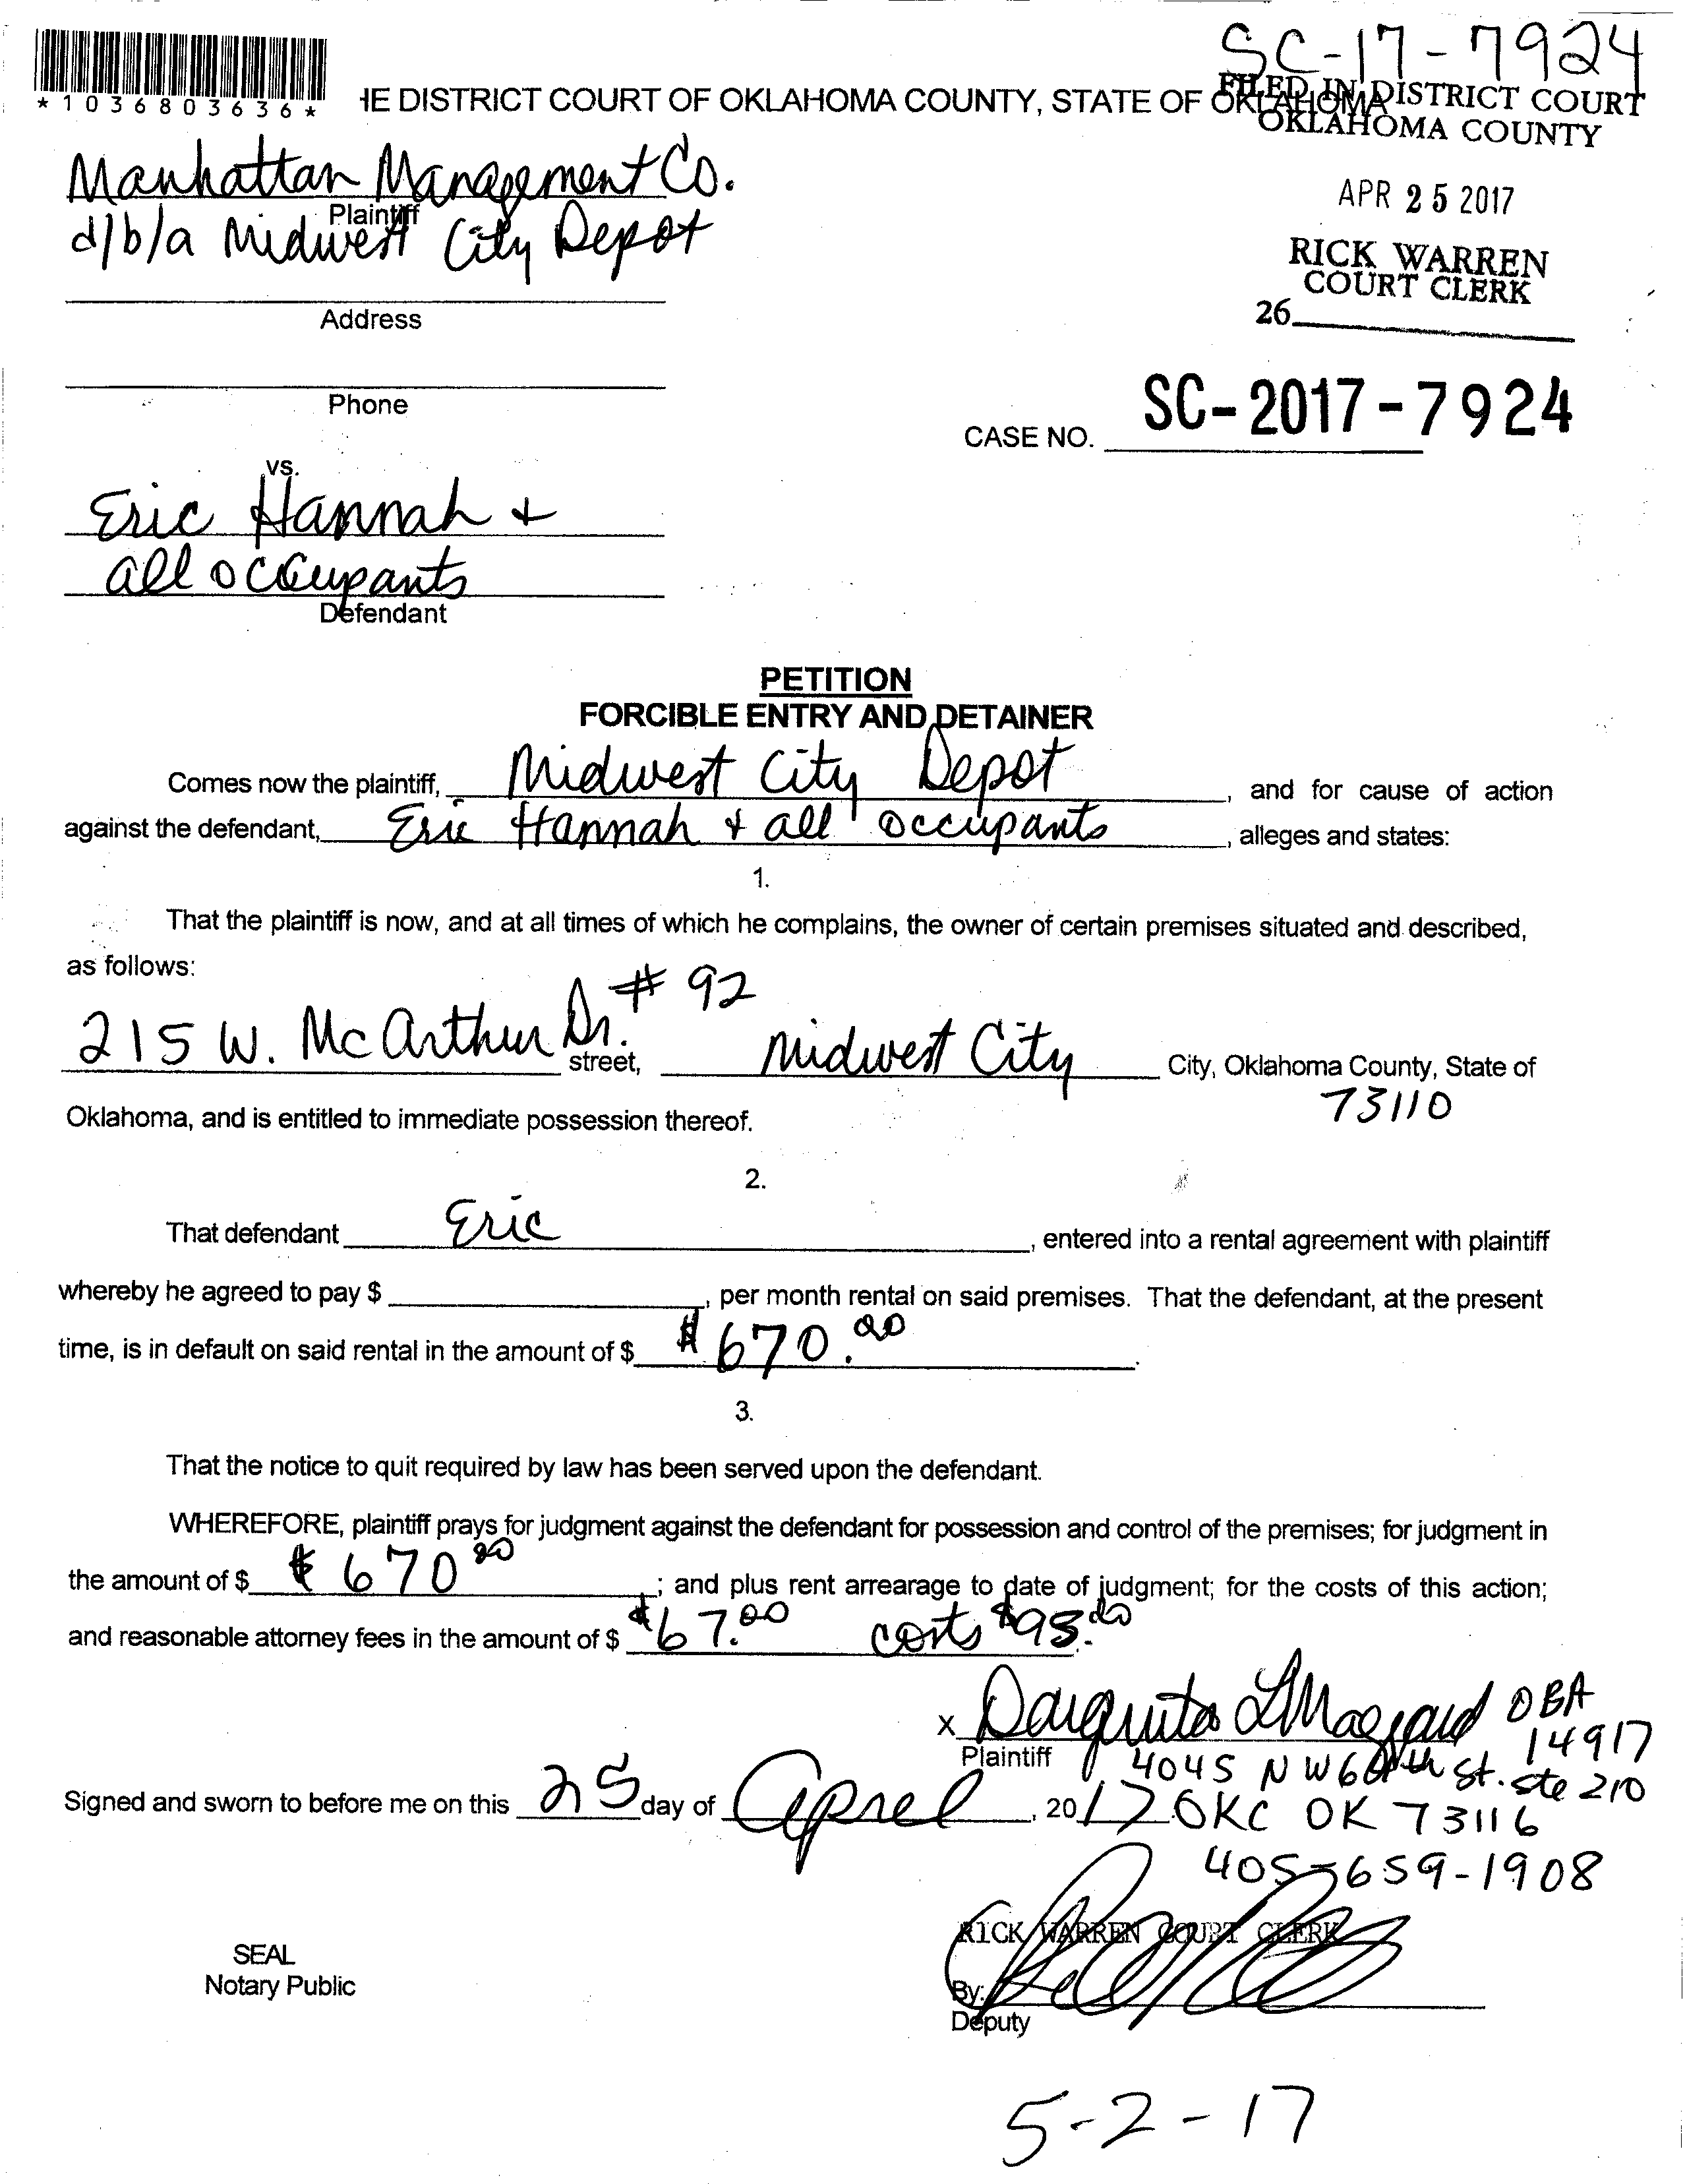 SC-17-7924
*1036803636*
HE DISTRICT COURT OF OKLAHOMA COUNTY, STATE OF OKLAHOMA
FILED IN DISTRICT COURT
OKLAHOMA COUNTY
Manhattan Management Co.
Plaintiff
d/b/a Midwest City Depot
APR 25 2017
RICK WARREN
COURT CLERK
26
Address
Phone
CASE NO. SC-2017-7924
vs.
Eric Hannah +
all occupants
Defendant
PETITION
FORCIBLE ENTRY AND DETAINER
Comes now the plaintiff, Midwest City Depot, and for cause of action
against the defendant, Eric Hannah + all occupants, alleges and states:
1.
That the plaintiff is now, and at all times of which he complains, the owner of certain premises situated and described,
as follows:
215 W. McArthur Dr. # 92 street, Midwest City City, Oklahoma County, State of
Oklahoma, and is entitled to immediate possession thereof. 73110
2.
That defendant Eric, entered into a rental agreement with plaintiff
whereby he agreed to pay $ , per month rental on said premises. That the defendant, at the present
time, is in default on said rental in the amount of $ $670.00.
3.
That the notice to quit required by law has been served upon the defendant.
WHEREFORE, plaintiff prays for judgment against the defendant for possession and control of the premises; for judgment in
the amount of $ $670 00; and plus rent arrearage to date of judgment; for the costs of this action;
and reasonable attorney fees in the amount of $ $67.00 costs $95.00
x OBA
Plaintiff 14917
4045 NW 64th St. Ste 210
Signed and sworn to before me on this 25 day of April, 2017 OKC OK 73116
405-659-1908
RICK WARREN COURT CLERK
SEAL
Notary Public
By:
Deputy
5-2-17